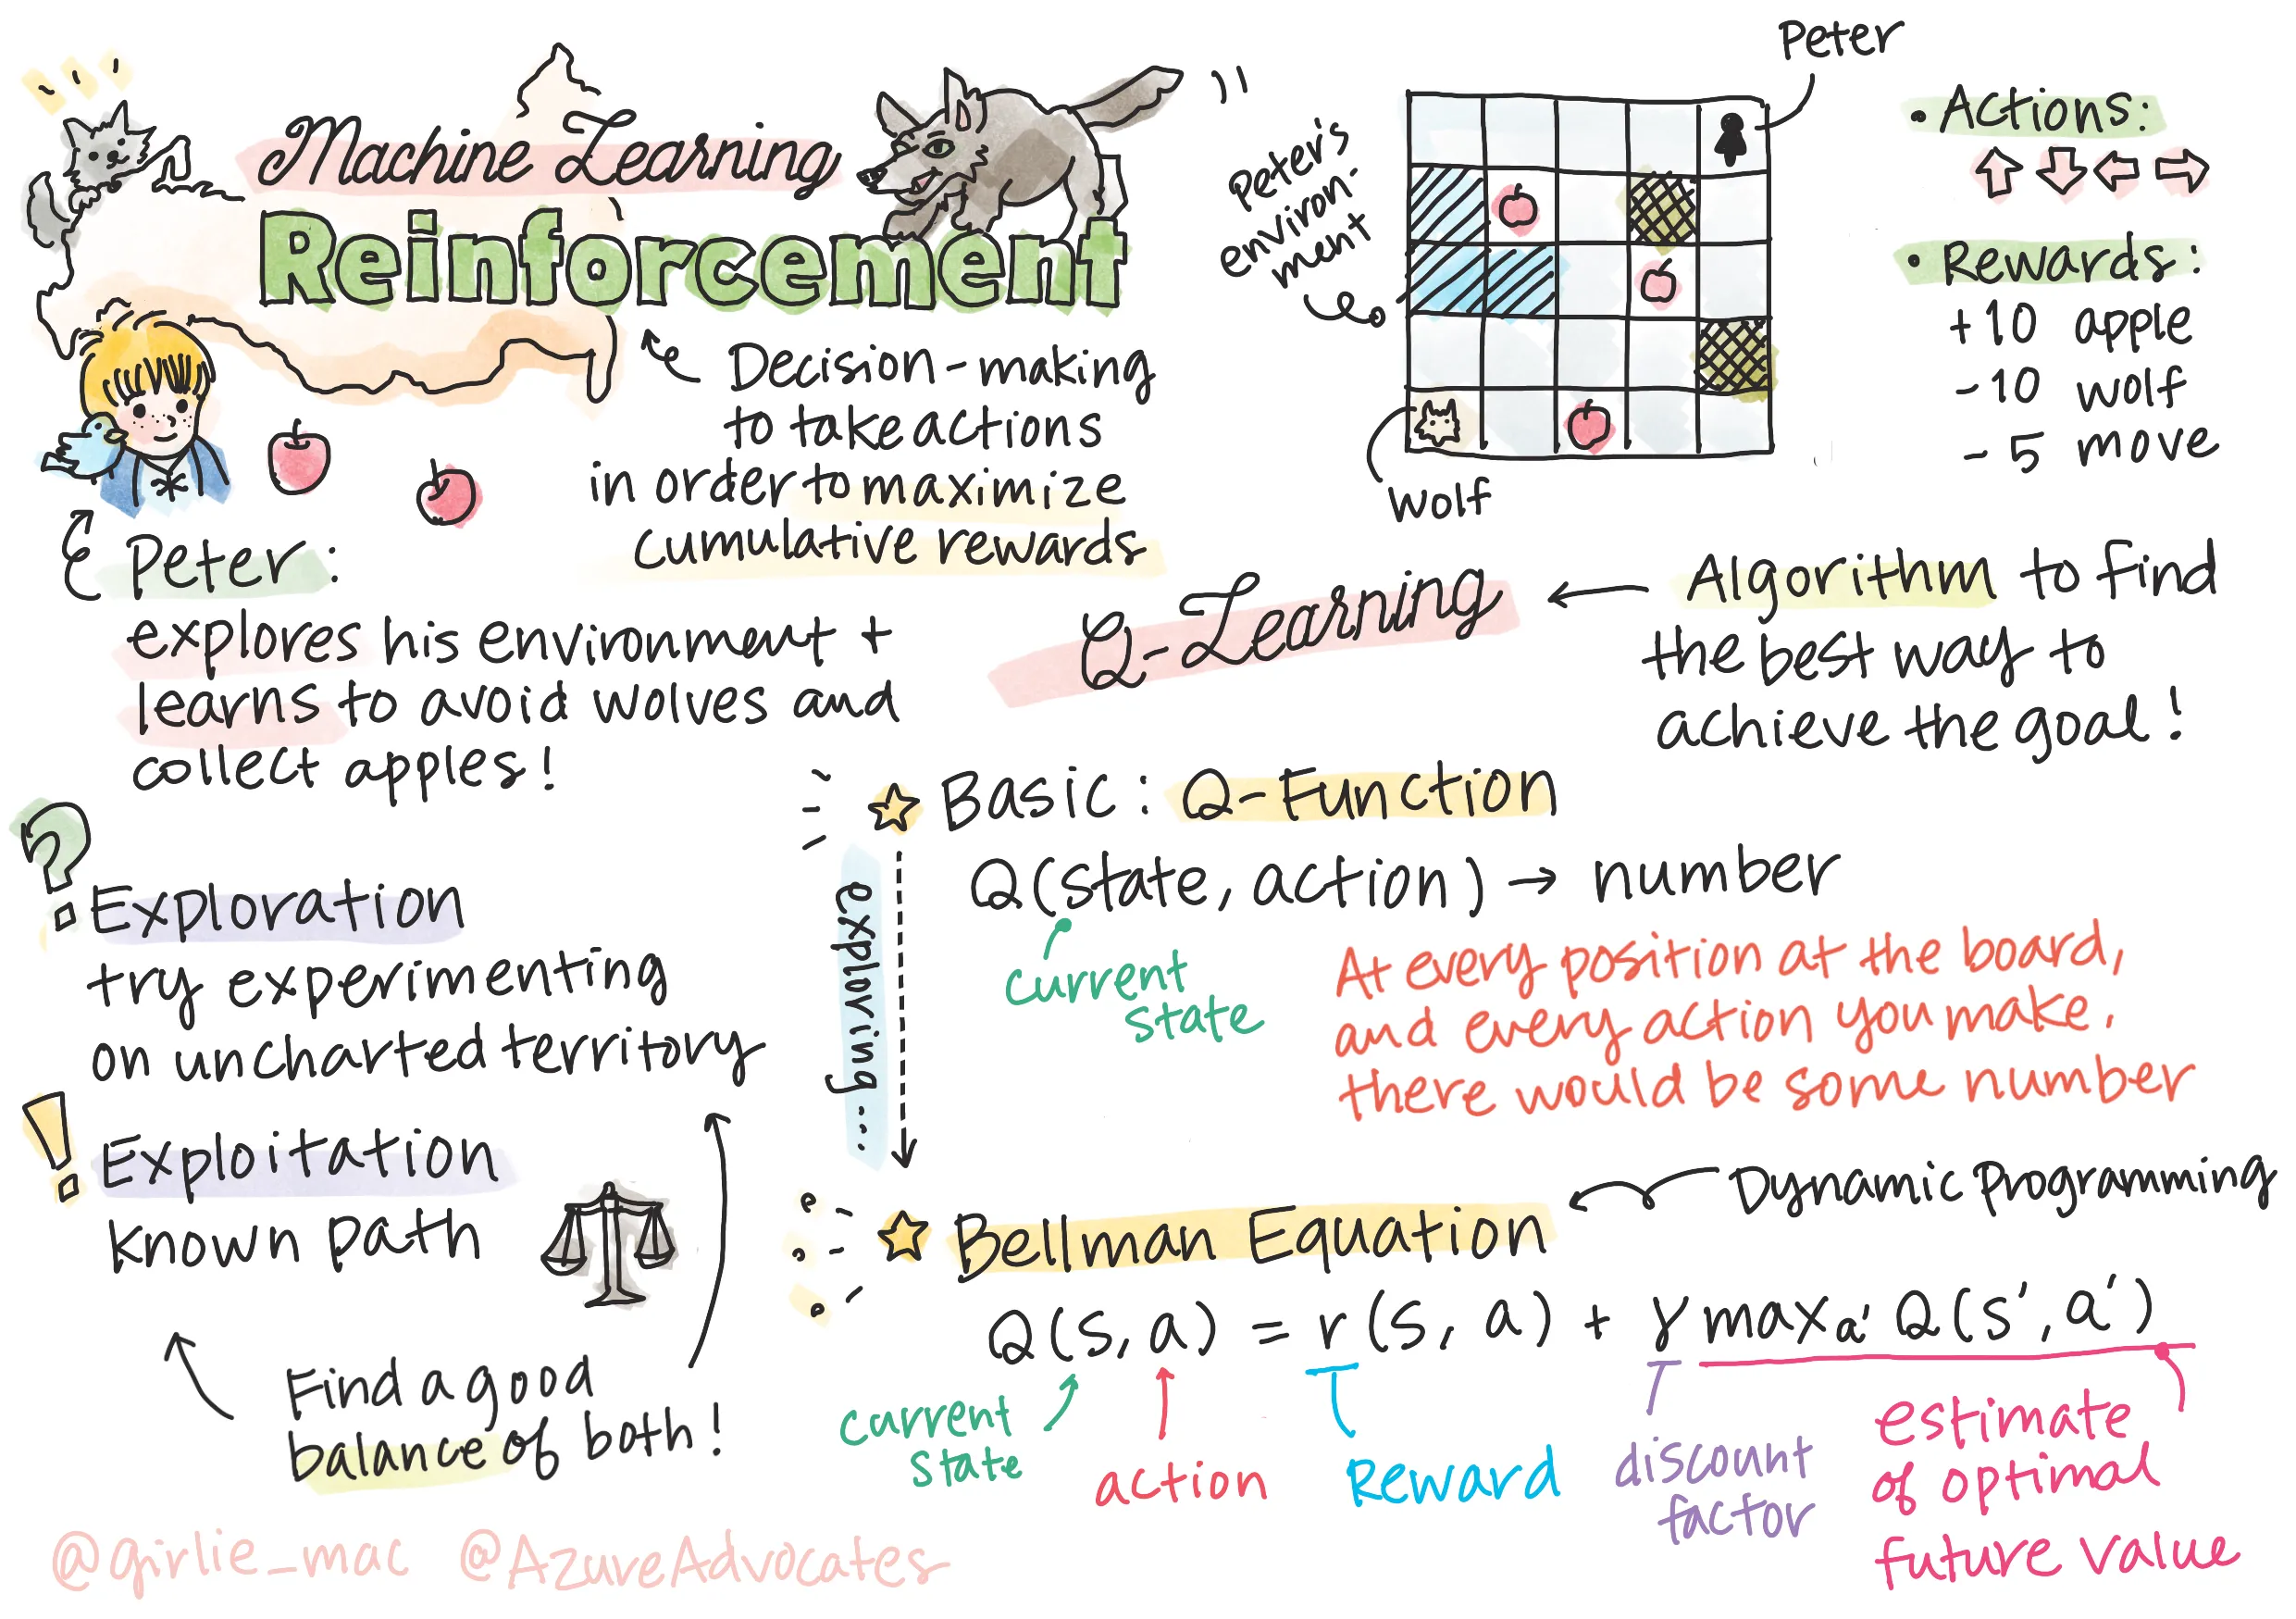 Machine Learning
Reinforcement
Decision-making
to take actions
in order to maximize
cumulative rewards
Peter:
explores his environment +
learns to avoid wolves and
collect apples!
?
Exploration
try experimenting
on uncharted territory
!
Exploitation
known path
Find a good
balance of both!
Peter
Peter's
environ-
ment
wolf
• Actions:
⇧ ⇩ ⇦ ⇨
• Rewards:
+10 apple
-10 wolf
- 5 move
Q-Learning
← Algorithm to find
the best way to
achieve the goal!
Basic: Q-Function
Q(state, action) → number
current
state
At every position at the board,
and every action you make,
there would be some number
exploring...
Bellman Equation
Dynamic Programming
Q(s, a) = r(s, a) + γ maxa' Q(s', a')
current
state
action
Reward
discount
factor
estimate
of optimal
future value
@girlie_mac @AzureAdvocates